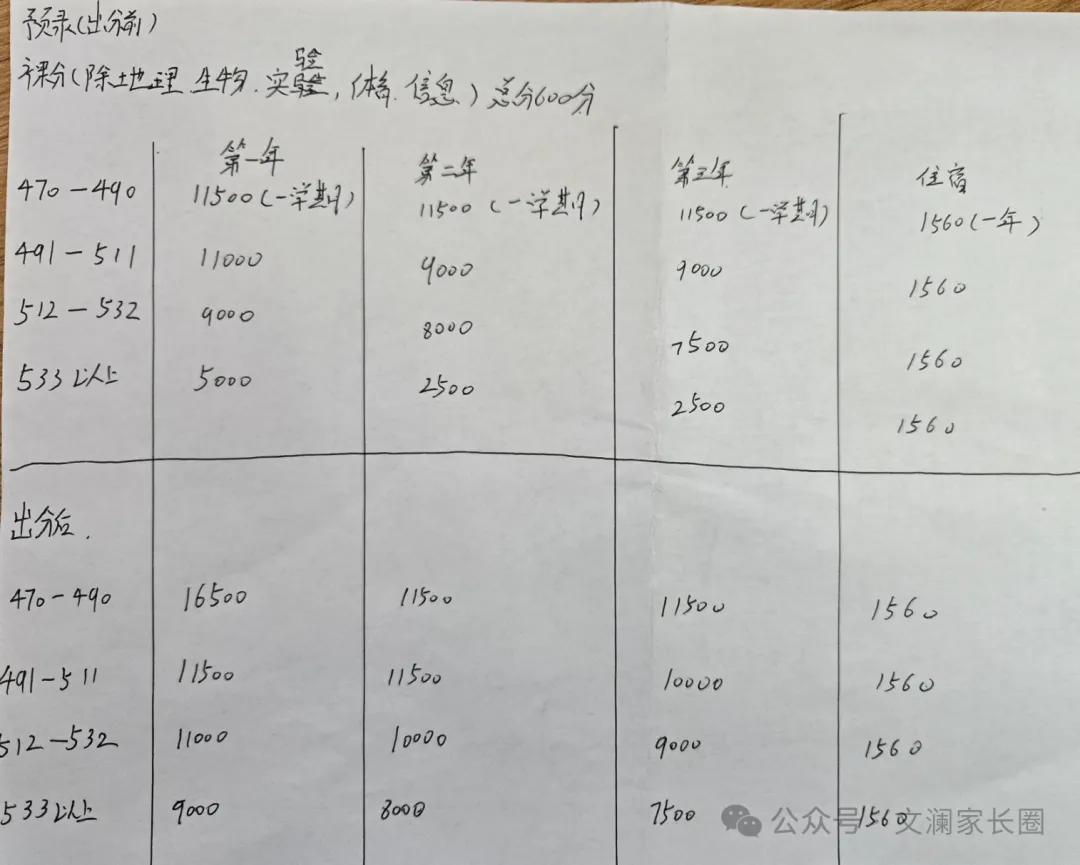 预录(出分前)
裸分(除地理 生物.实验,体育.信息)总分600分
第一年 第二年 第三年 住宿
470-490 11500(一学期) 11500(一学期) 11500(一学期) 1560(一年)
491-511 11000 9000 9000 1560
512-532 9000 8000 7500 1560
533以上 5000 2500 2500 1560
出分后.
470-490 16500 11500 11500 1560
491-511 11500 11500 10000 1560
512-532 11000 10000 9000 1560
533以上 9000 8000 7500 1560
公众号 文澜家长圈